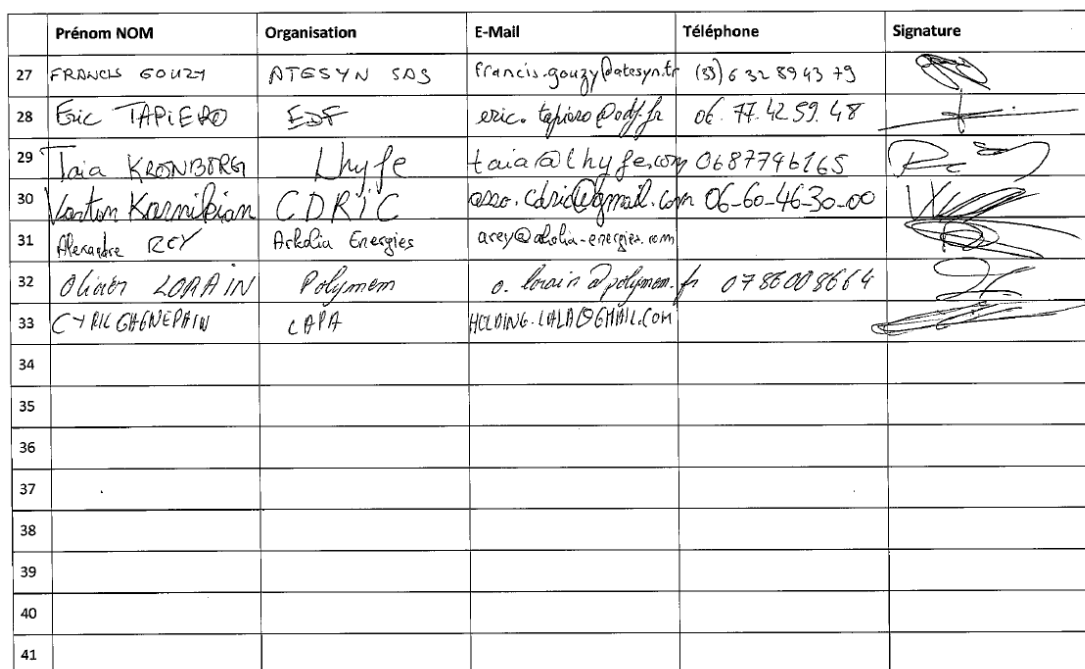 Prénom NOM Organisation E-Mail Téléphone Signature
27 FRANCIS GOUZY ATESYN SAS francis.gouzy@atesyn.fr (33) 6 32 89 43 79
28 Eric TAPIERO EDF eric.tapiero@edf.fr 06.77.42.59.48
29 Taia KRONBORG Lhyfe taia@lhyfe.com 0687796165
30 Karnikian CDRIC asso.cdric@gmail.com 06-60-46-30-00
31 Alexandre REY Arkolia Energies arey@arkolia-energies.com
32 Olivier LORAIN Polymem o.lorain@polymem.fr 0786008664
33 CYRIL GAGNEPAIN
34
35
36
37
38
39
40
41